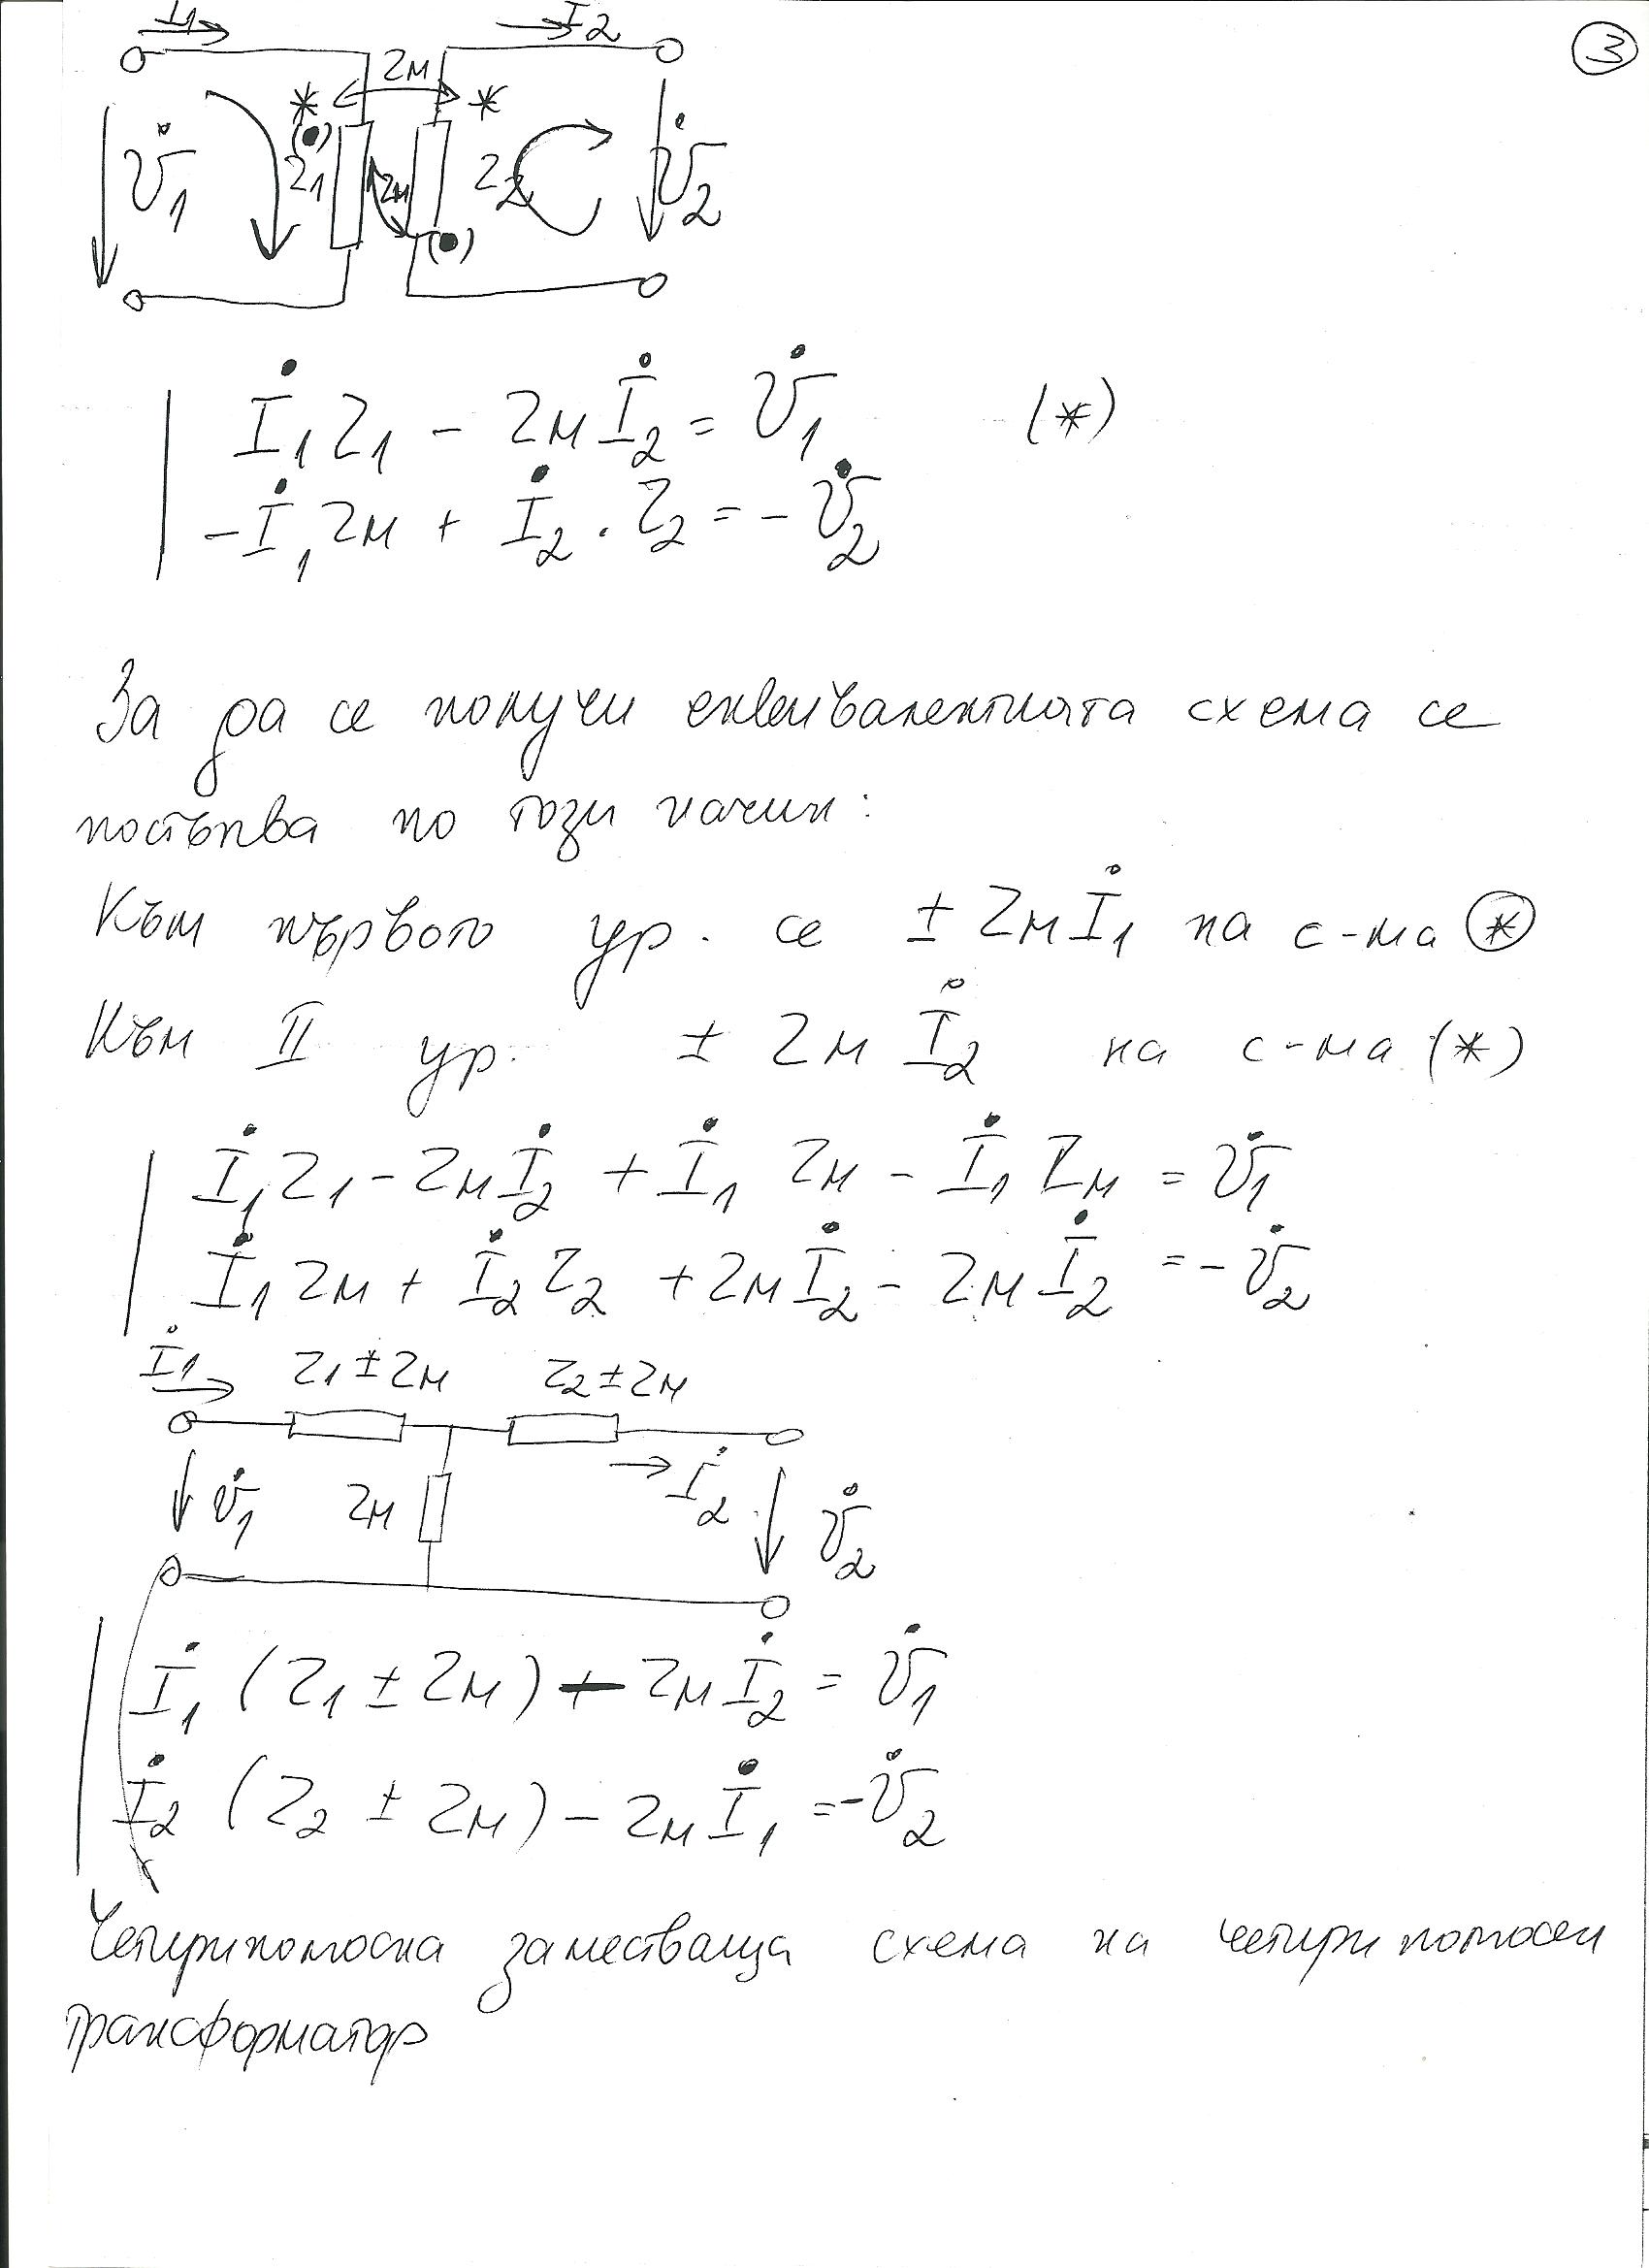 ③
İ1 İ2
ZM
* *
(•)
U̇1 Z1 ZM Z2 U̇2
(•)
İ1 Z1 - ZM İ2 = U̇1 (*)
-İ1 ZM + İ2 . Z2 = - U̇2
За да се получи еквивалентната схема се
постъпва по този начин:
Към първото ур. се ± ZM İ1 на с-ма (*)
Към II ур. ± ZM İ2 на с-ма (*)
İ1 Z1 - ZM İ2 + İ1 ZM - İ1 ZM = U̇1
İ1 ZM + İ2 Z2 + ZM İ2 - ZM İ2 = - U̇2
İ1 Z1 ± ZM Z2 ± ZM
U̇1 ZM İ2 U̇2
İ1 (Z1 ± ZM) - ZM İ2 = U̇1
İ2 (Z2 ± ZM) - ZM İ1 = - U̇2
Четириполюсна заместваща схема на четириполюсен
трансформатор